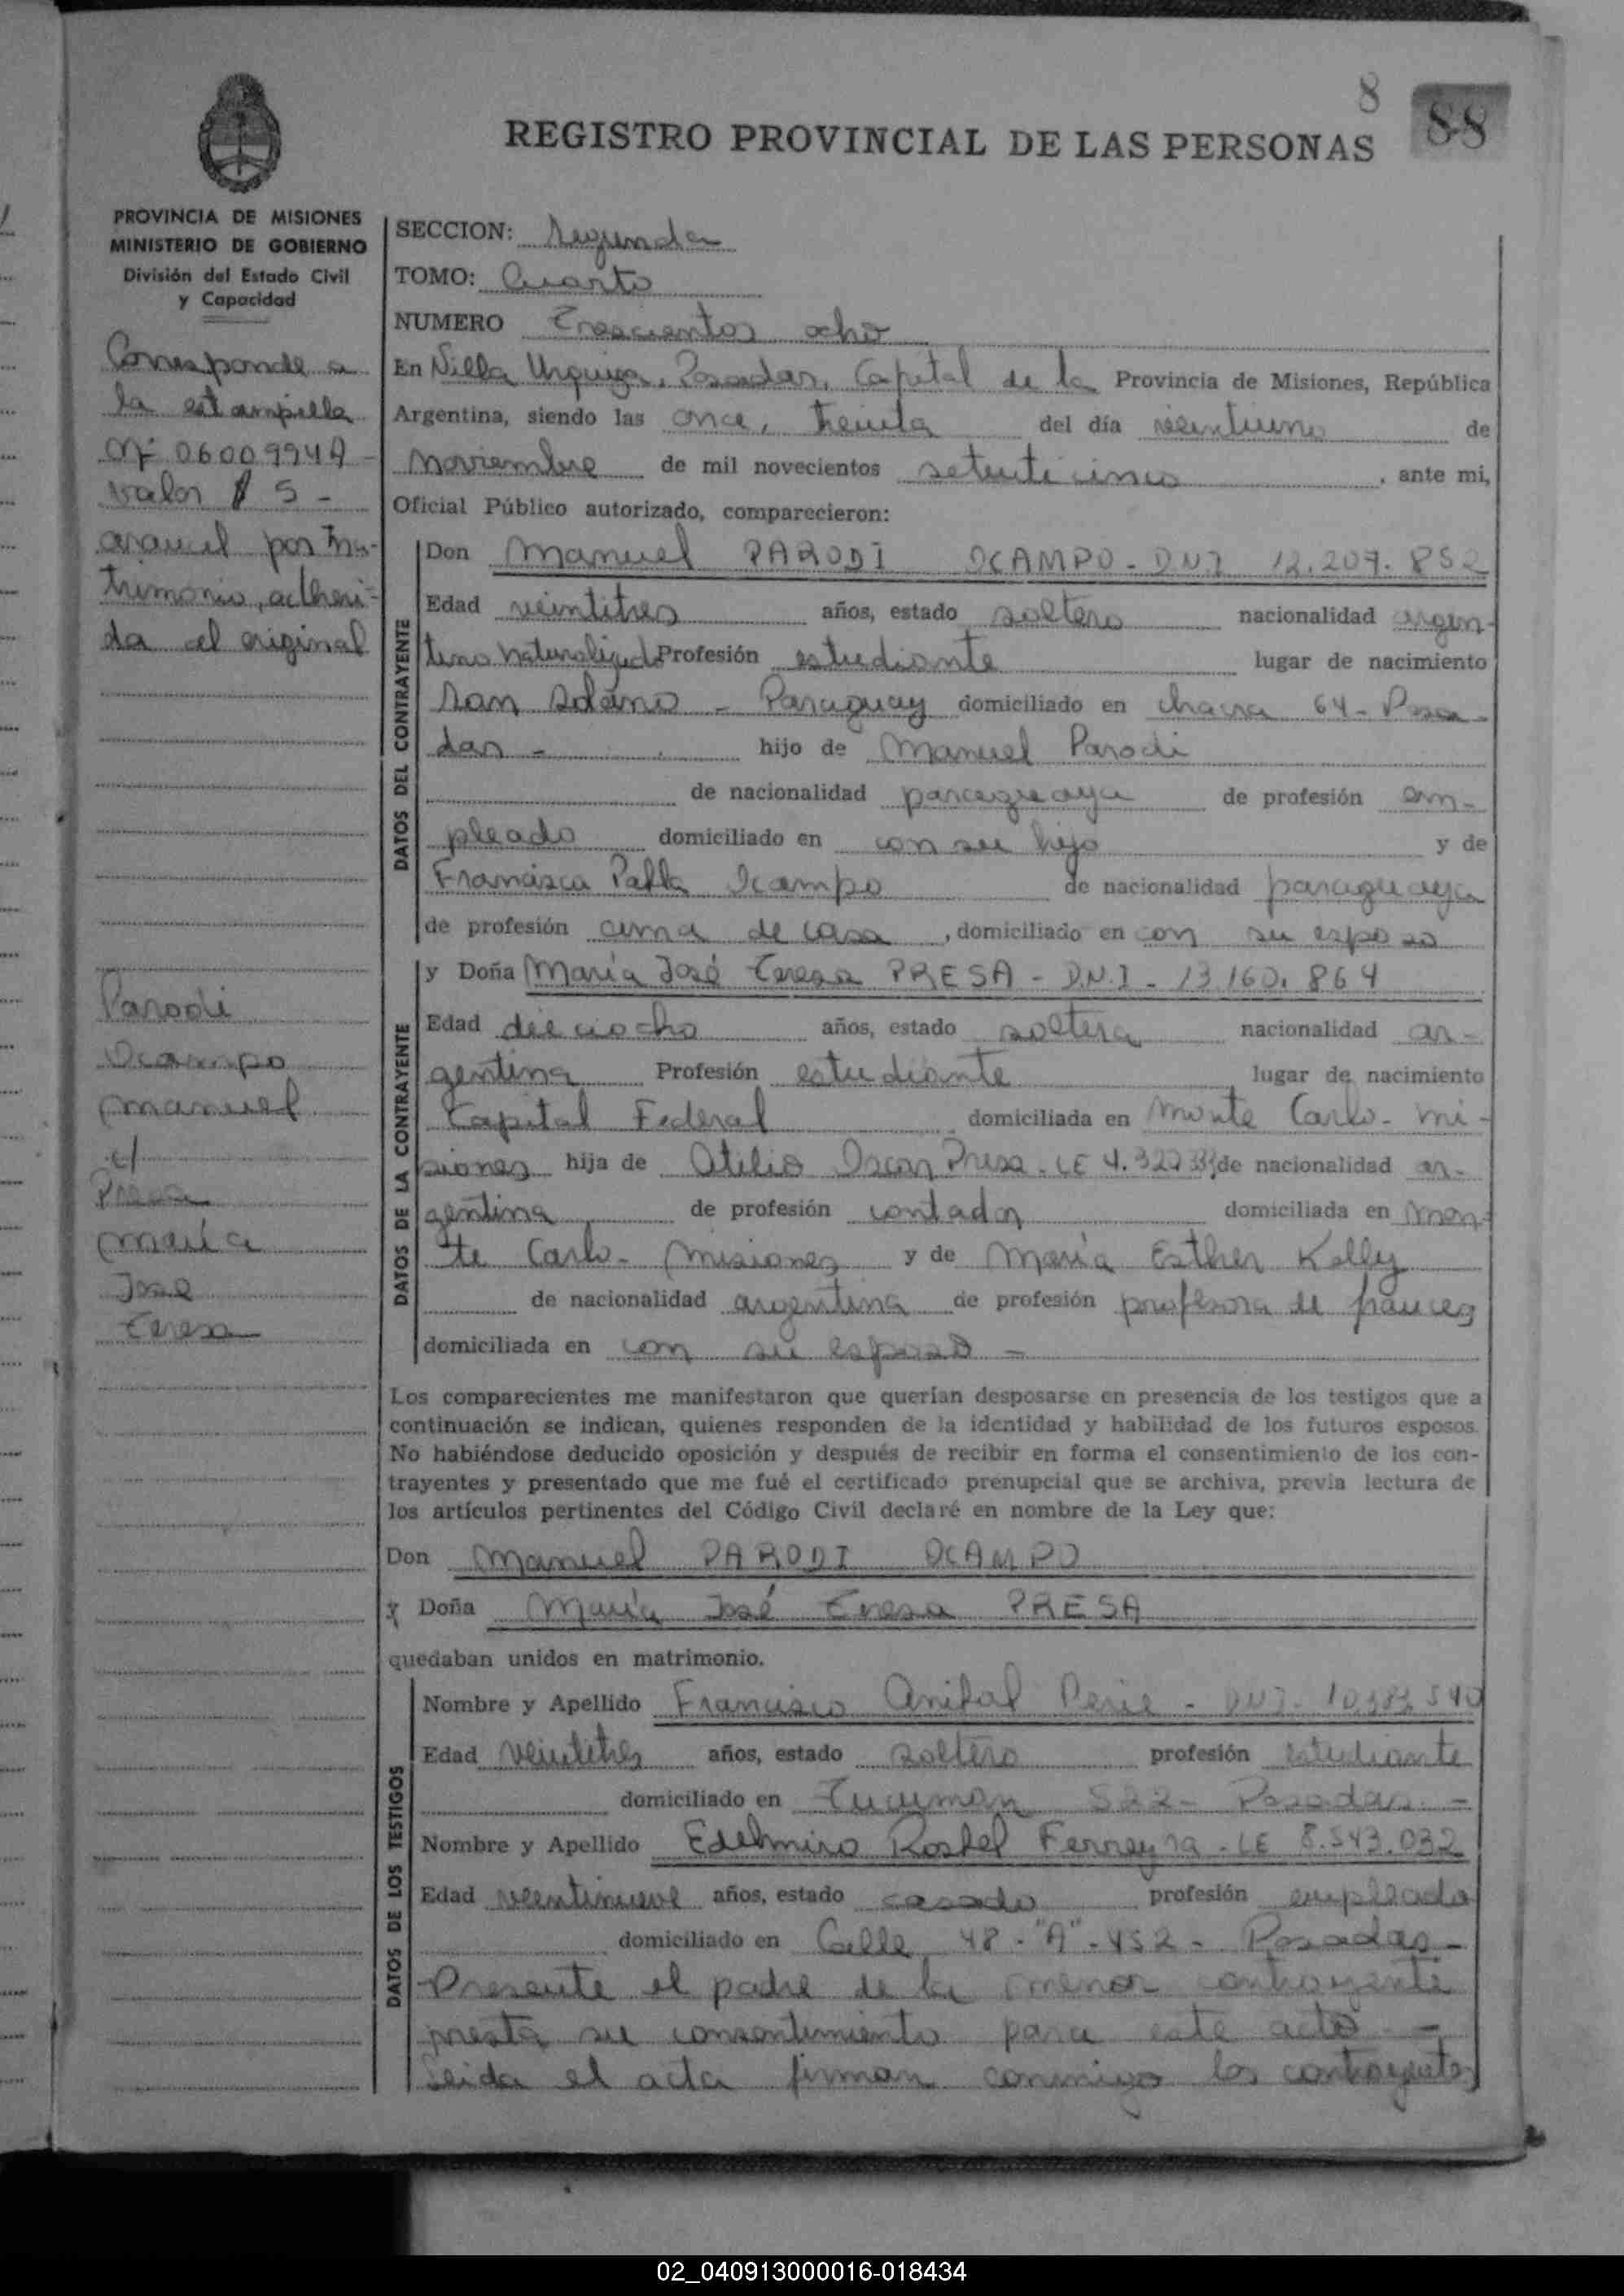 8
88
REGISTRO PROVINCIAL DE LAS PERSONAS
PROVINCIA DE MISIONES
MINISTERIO DE GOBIERNO
División del Estado Civil
y Capacidad
Corresponde a
la estampilla
Nº 0600994A -
valor $ 5 -
arancel por ma-
trimonio, adheri-
da al original
Parodi
Ocampo
Manuel
c/
Presa
María
José
Teresa
SECCION: Segunda
TOMO: Cuarto
NUMERO Trescientos ocho
En Villa Urquiza, Posadas, Capital de la Provincia de Misiones, República
Argentina, siendo las once, treinta del día veintiuno de
noviembre de mil novecientos setenticinco, ante mi,
Oficial Público autorizado, comparecieron:
DATOS DEL CONTRAYENTE
Don Manuel PARODI OCAMPO - DNI 12.207.852
Edad veintitres años, estado soltero nacionalidad argen-
tino naturalizado Profesión estudiante lugar de nacimiento
San Solano - Paraguay domiciliado en chacra 64 - Posa-
das - hijo de Manuel Parodi
de nacionalidad paraguaya de profesión em-
pleado domiciliado en con su hijo y de
Francisca Pabla Ocampo de nacionalidad paraguaya
de profesión ama de casa, domiciliado en con su esposo
DATOS DE LA CONTRAYENTE
y Doña María José Teresa PRESA - D.N.I - 13.160.864
Edad dieciocho años, estado soltera nacionalidad ar-
gentina Profesión estudiante lugar de nacimiento
Capital Federal domiciliada en Monte Carlo - Mi-
siones hija de Atilio Oscar Presa - LE de nacionalidad ar-
gentina de profesión contador domiciliada en Mon-
te Carlo - Misiones y de María Esther Kelly
de nacionalidad argentina de profesión profesora de frances
domiciliada en con su esposo -
Los comparecientes me manifestaron que querían desposarse en presencia de los testigos que a
continuación se indican, quienes responden de la identidad y habilidad de los futuros esposos.
No habiéndose deducido oposición y después de recibir en forma el consentimiento de los con-
trayentes y presentado que me fué el certificado prenupcial que se archiva, previa lectura de
los artículos pertinentes del Código Civil declaré en nombre de la Ley que:
Don Manuel PARODI OCAMPO
y Doña María José Teresa PRESA
quedaban unidos en matrimonio.
DATOS DE LOS TESTIGOS
Nombre y Apellido Francisco Anibal Perie - DNI -
Edad veintitres años, estado soltero profesión estudiante
domiciliado en Tucuman 522 - Posadas -
Nombre y Apellido Edelmiro Rostel Ferreyra - LE 8.543.032
Edad veintinueve años, estado casado profesión empleado
domiciliado en Calle 48 - "A" - 452 - Posadas -
Presente el padre de la menor contrayente
presta su consentimiento para este acto -
Leida el acta firman conmigo los contrayentes
02_040913000016-018434